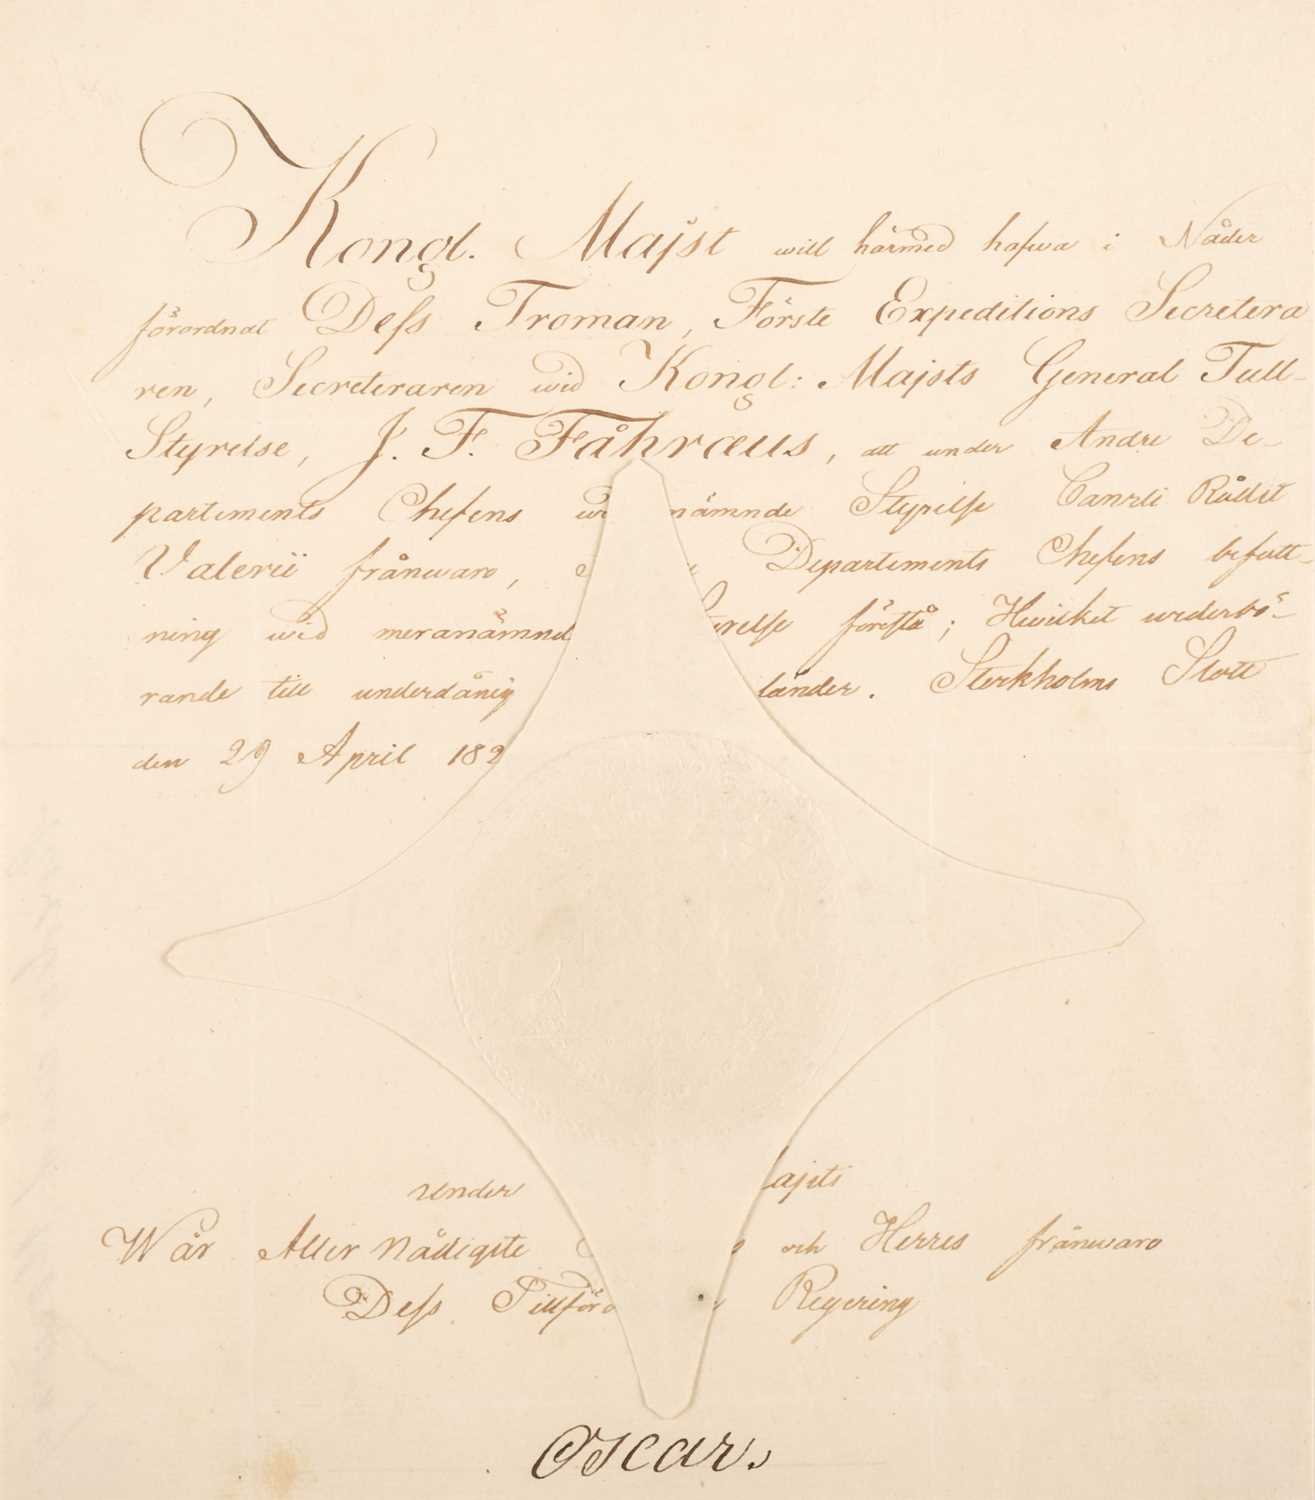 Kongl. Majst will härmed hafwa i Nåder
förordnat Dess Troman, Förste Expeditions Secretera
ren, Secreteraren wid Kongl: Majsts General Tull-
Styrelse, J. F. Fåhræus, att under Andre De-
partements Chefens nämnde Styrelse Cancli Rådet
Valerii frånwaro, Departements Chefens befatt-
ning wid meranämnd yrelse förestå; Hwilket wederbö-
rande till underdånig länder. Stockholms Slott
den 29 April 182
Under ajsts
Wår Aller Nådigste och Herres frånwaro
Dess Tillföro Regering
Oscar.